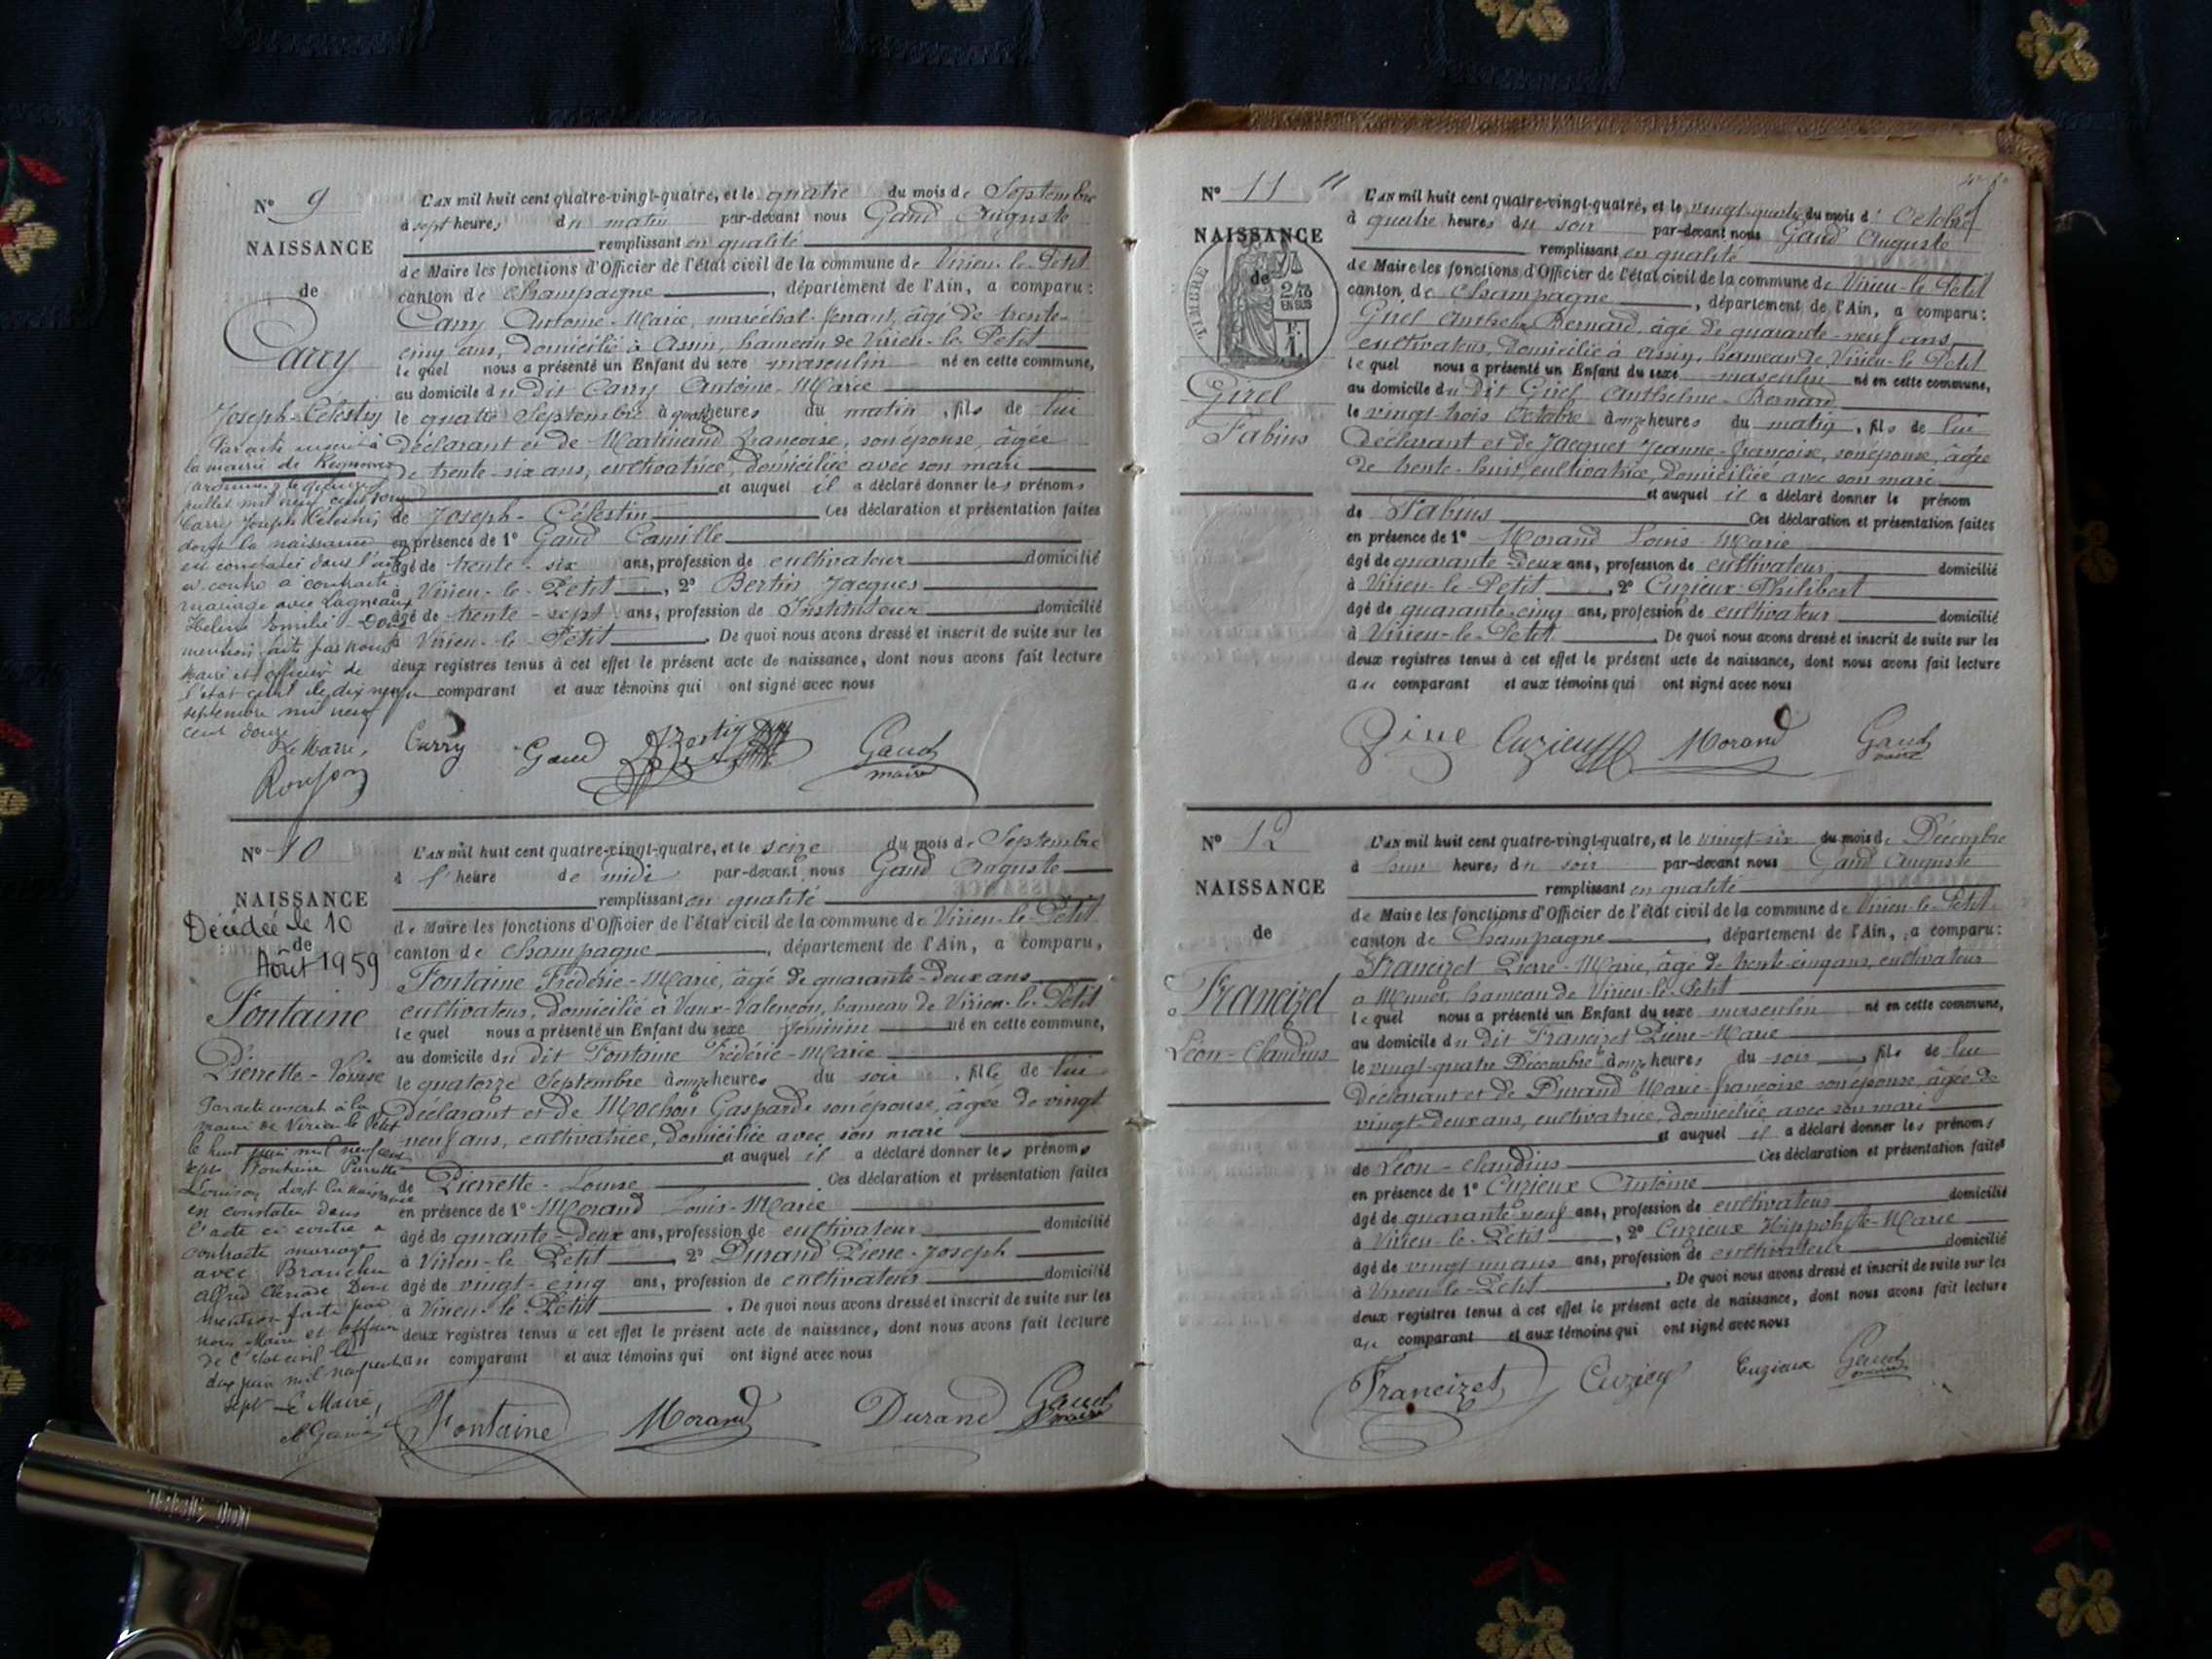 N° 9
NAISSANCE
de
Carry
Joseph-Célestin
L'AN mil huit cent quatre-vingt-quatre, et le quatre du mois de Septembre
à sept heures du matin par-devant nous Gand Auguste
remplissant en qualité
de Maire les fonctions d'Officier de l'état civil de la commune de Virieu-le-Petit
canton de Champagne, département de l'Ain, a comparu:
Carry Antoine-Marie, maréchal-ferrant, âgé de trente-
cinq ans, domicilié à Assin, hameau de Virieu-le-Petit
lequel nous a présenté un Enfant du sexe masculin né en cette commune,
au domicile du dit Carry Antoine-Marie
le quatre Septembre à quatre heures du matin, fils de lui
déclarant et de Martinand Françoise, son épouse, âgée
de trente-six ans, cultivatrice, domiciliée avec son mari
et auquel il a déclaré donner les prénoms
de Joseph-Célestin Ces déclaration et présentation faites
en présence de 1° Gand Camille
âgé de trente-six ans, profession de cultivateur domicilié
à Virieu-le-Petit, 2° Bertin Jacques
âgé de trente-sept ans, profession de Instituteur domicilié
à Virieu-le-Petit. De quoi nous avons dressé et inscrit de suite sur les
deux registres tenus à cet effet le présent acte de naissance, dont nous avons fait lecture
au comparant et aux témoins qui ont signé avec nous
Par acte inscrit à
la mairie de
juillet mil neuf cent
Carry Joseph Célestin
dont la naissance
est constatée dans l'acte
ci-contre a contracté
mariage avec Lagneaux
Hélène Emilie. Dont
mention faite par nous
Maire et officier de
l'état civil le dix neuf
septembre mil neuf
cent douze
Le Maire,
Carry Gand Bertin Gaud
maire
N° 10
NAISSANCE
Décédée le 10
de
Août 1959
Fontaine
Pierrette-Louise
L'AN mil huit cent quatre-vingt-quatre, et le seize du mois de Septembre
à 1' heure de midi par-devant nous Gand Auguste
remplissant en qualité
de Maire les fonctions d'Officier de l'état civil de la commune de Virieu-le-Petit
canton de Champagne, département de l'Ain, a comparu,
Fontaine Frédéric-Marie, âgé de quarante-deux ans
cultivateur, domicilié à Vaux-Valençon, hameau de Virieu-le-Petit
lequel nous a présenté un Enfant du sexe féminin né en cette commune,
au domicile du dit Fontaine Frédéric-Marie
le quatorze Septembre à onze heures du soir, fille de lui
déclarant et de Mochon Gasparde son épouse, âgée de vingt
neuf ans, cultivatrice, domiciliée avec son mari
et auquel il a déclaré donner les prénoms
de Pierrette-Louise. Ces déclaration et présentation faites
en présence de 1° Morand Louis-Marie
âgé de qurante-deux ans, profession de cultivateur domicilié
à Virieu-le-Petit, 2° Durand Pierre-Joseph
âgé de vingt-cinq ans, profession de cultivateur domicilié
à Virieu-le-Petit. De quoi nous avons dressé et inscrit de suite sur les
deux registres tenus à cet effet le présent acte de naissance, dont nous avons fait lecture
au comparant et aux témoins qui ont signé avec nous
Par acte inscrit à la
mairie de Virieu le Petit
le huit juin mil neuf cent
sept Fontaine Pierrette
Louise dont la naissance
en constatée dans
l'acte ci contre a
contracté mariage
avec
Alfred Dont
mention faite par
nous Maire et officier
de l'état civil le
dix juin mil neuf cent
sept Le Maire,
Fontaine Morand Durand Gaud
maire
N° 11 11
NAISSANCE
de
TIMBRE
2/10
EN SUS
Girel
Fabius
L'AN mil huit cent quatre-vingt-quatre, et le vingt-quatre du mois d'Octobre
à quatre heures du soir par-devant nous Gand Auguste
remplissant en qualité
de Maire les fonctions d'Officier de l'état civil de la commune de Virieu-le-Petit
canton de Champagne, département de l'Ain, a comparu:
Girel Anthelme Bernard, âgé de quarante-neuf ans,
cultivateur, domicilié à Assin, hameau de Virieu-le-Petit
lequel nous a présenté un Enfant du sexe masculin né en cette commune,
au domicile du dit Girel Anthelme-Bernard
le vingt-trois Octobre à onze heures du matin, fils de lui
déclarant et de Jacquet Jeanne-Françoise, son épouse, âgée
de trente-huit, cultivatrice, domiciliée avec son mari
et auquel il a déclaré donner le prénom
de Fabius Ces déclaration et présentation faites
en présence de 1° Morand Louis-Marie
âgé de quarante-deux ans, profession de cultivateur domicilié
à Virieu-le-Petit, 2° Cuzieux Philibert
âgé de quarante-cinq ans, profession de cultivateur domicilié
à Virieu-le-Petit. De quoi nous avons dressé et inscrit de suite sur les
deux registres tenus à cet effet le présent acte de naissance, dont nous avons fait lecture
au comparant et aux témoins qui ont signé avec nous
Cuzieux Morand Gaud
maire
N° 12
NAISSANCE
de
Francizet
Léon-Claudius
L'AN mil huit cent quatre-vingt-quatre, et le vingt-six du mois de Décembre
à heures du soir par-devant nous Gand Auguste
remplissant en qualité
de Maire les fonctions d'Officier de l'état civil de la commune de Virieu-le-Petit
canton de Champagne, département de l'Ain, a comparu:
Francizet Pierre-Marie, âgé de trente-cinq ans, cultivateur
à Munet, hameau de Virieu-le-Petit
lequel nous a présenté un Enfant du sexe masculin né en cette commune,
au domicile du dit Francizet Pierre-Marie
le vingt-quatre Décembre à onze heures du soir, fils de lui
déclarant et de Durand Marie-Françoise son épouse, âgée de
vingt-deux ans, cultivatrice, domiciliée avec son mari
et auquel il a déclaré donner les prénoms
de Léon-Claudius Ces déclaration et présentation faites
en présence de 1° Cuzieux Antoine
âgé de quarante-neuf ans, profession de cultivateur domicilié
à Virieu-le-Petit, 2° Cuzieux Hippolyte-Marie
âgé de vingt un ans ans, profession de cultivateur domicilié
à Virieu-le-Petit. De quoi nous avons dressé et inscrit de suite sur les
deux registres tenus à cet effet le présent acte de naissance, dont nous avons fait lecture
au comparant et aux témoins qui ont signé avec nous
Francizet Cuzieux Cuzieux Gaud
maire